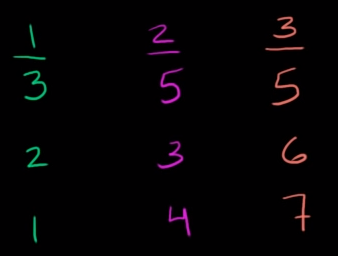 1/3 2/5 3/5
2 3 6
1 4 7